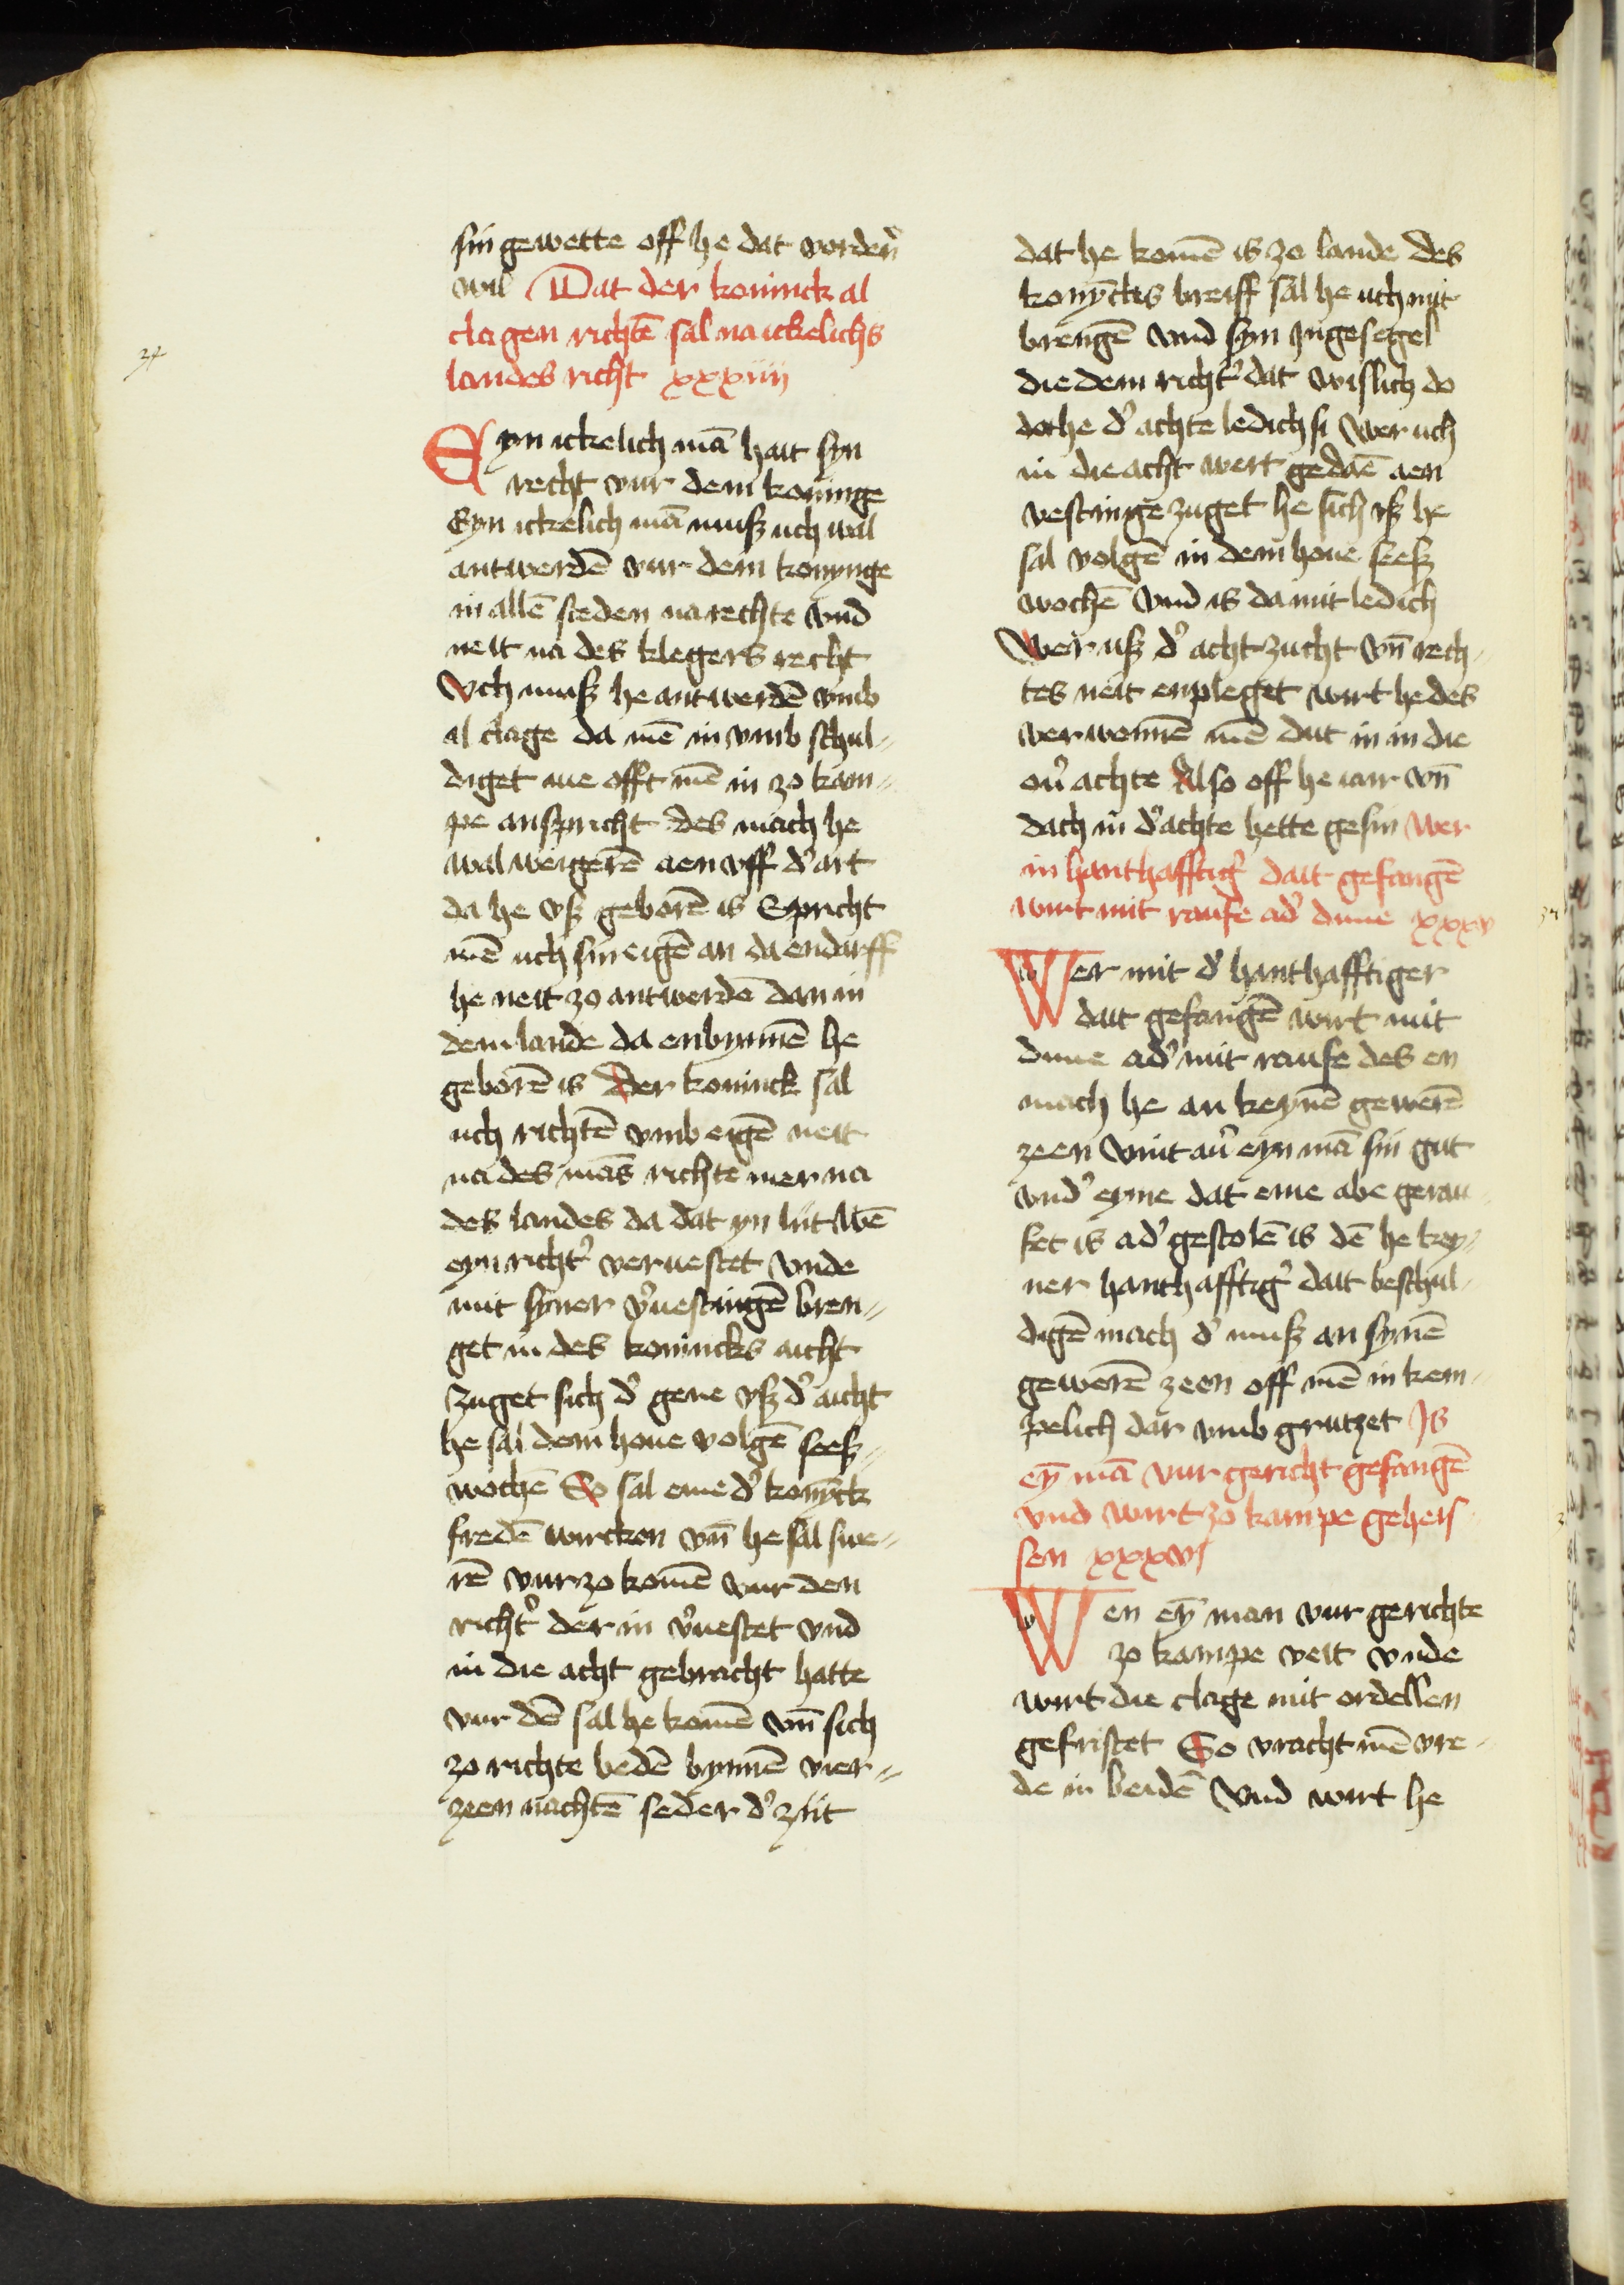 sin gewette off he dat vorden̉
wil Dat der koninck al
clagen richtē sal na ickelichs
landes richt xxxiiij
34
Eyn ickelich mā hait syn
recht vur dem koninge
Eyn ickelich mā musz uch wal
antwerdē vur dem konynge
in allē steden na rechte vnd
neit na des klegers recht
Vch musz he antwerdē vmb
al clage da mē in vmb schul-
diget me offt mē in zo kam-
pe anspricht des mach he
wal weigerē aen vff d' art
da he vsz geborē is Spricht
mē uch sin eigē an da endarff
he neit zo antwerdē dan in
dem lande da enbynnē he
geborē is Der koninck sal
uch richtē vmb eigē neit
na des mās richte mer na
des landes da dat yn liit Wē
eyn richt' veruestet vnde
mit syner v'uestingē bren-
get in des konincks aicht
Zuget sich d' gene vsz d' aicht
he sal dem houe volgē seesz-
wochē So sal eme d' konȳck
fredē wircken vn̄ he sal swe-
rē vur zo komē vur den
richt' der in v'uestet vnd
in die acht gebracht hatte
vur dē sal he komē vn̄ sich
zo richte bedē bynnē vier-
zeen nachtē seder d' ziit
dat he komē is zo lande des
konȳckis breiff sal he uch mit
brengē vnd syn Ingesegel
die dem richt' dat wislich do
dat he d' achte ledich si Wer uch
in die acht wert gedaē aen
vestinge zuget he sich vsz he
sal volgē in dem houe seesz
wochē vnd is da mit ledich
Wer usz d' acht zucht vn̄ rech-
tes neit enpleget wirt he des
verwonnē mē dut in in die
ou' achte Also off he iair vn̄
dach in d' achte hette gesin Wer
in hanthafftig' dait gefangē
wirt mit raufe ad' duue xxxv
Wer mit d' hanthafftiger
dait gefangē wirt mit
duue ad' mit raufe des en
mach he an keynē gewerē
zeen Vint au' eyn mā sin gut
vnd' eyme dat eme abe gerau-
fet is ad' gestolē is dē he key-
ner hanthafftig' dait beschul-
digē mach d' musz an synē
gewerē zeen off mē in kem-
pelich dar vmb grutzet Is
eȳ mā vur gericht gefangē
vnd wirt zo kampe geheis
sen xxxvj
Wen eȳ man vur gerichte
zo kampe veit vnde
wirt die clage mit ordellen
gefristet So vracht mē vre-
de in beidē Vnd wirt he